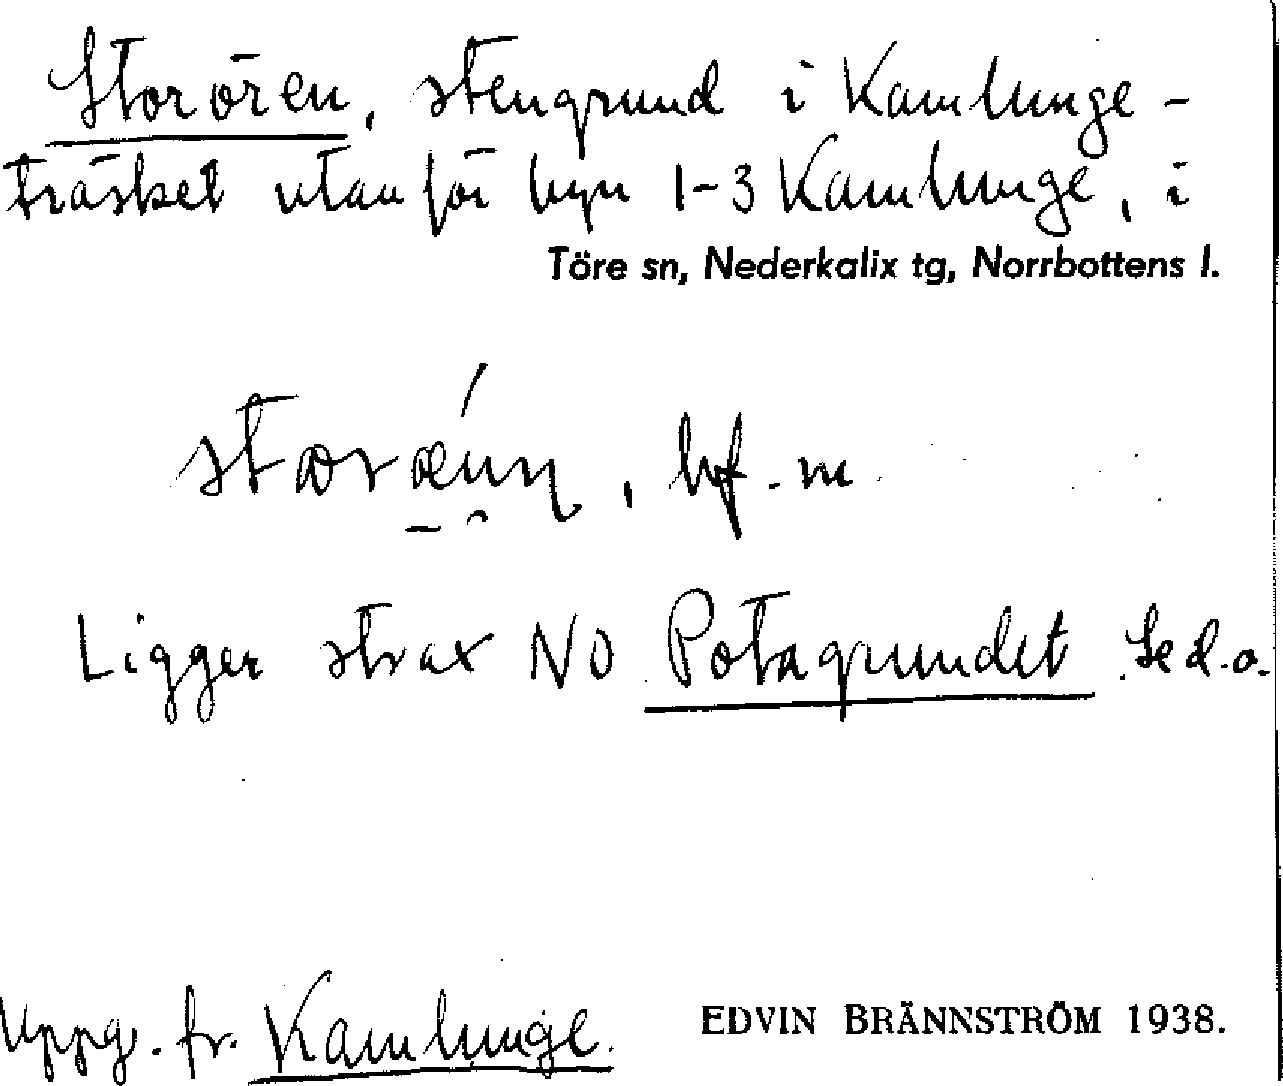 Storören, stengrund i Kamlunge-
träsket utanför byn 1-3 Kamlunge, i
Töre sn, Nederkalix tg, Norrbottens l.
bf. m.
Ligger strax NO Potagrundet. Se d.o.
Uppg. fr. Kamlunge.
EDVIN BRÄNNSTRÖM 1938.